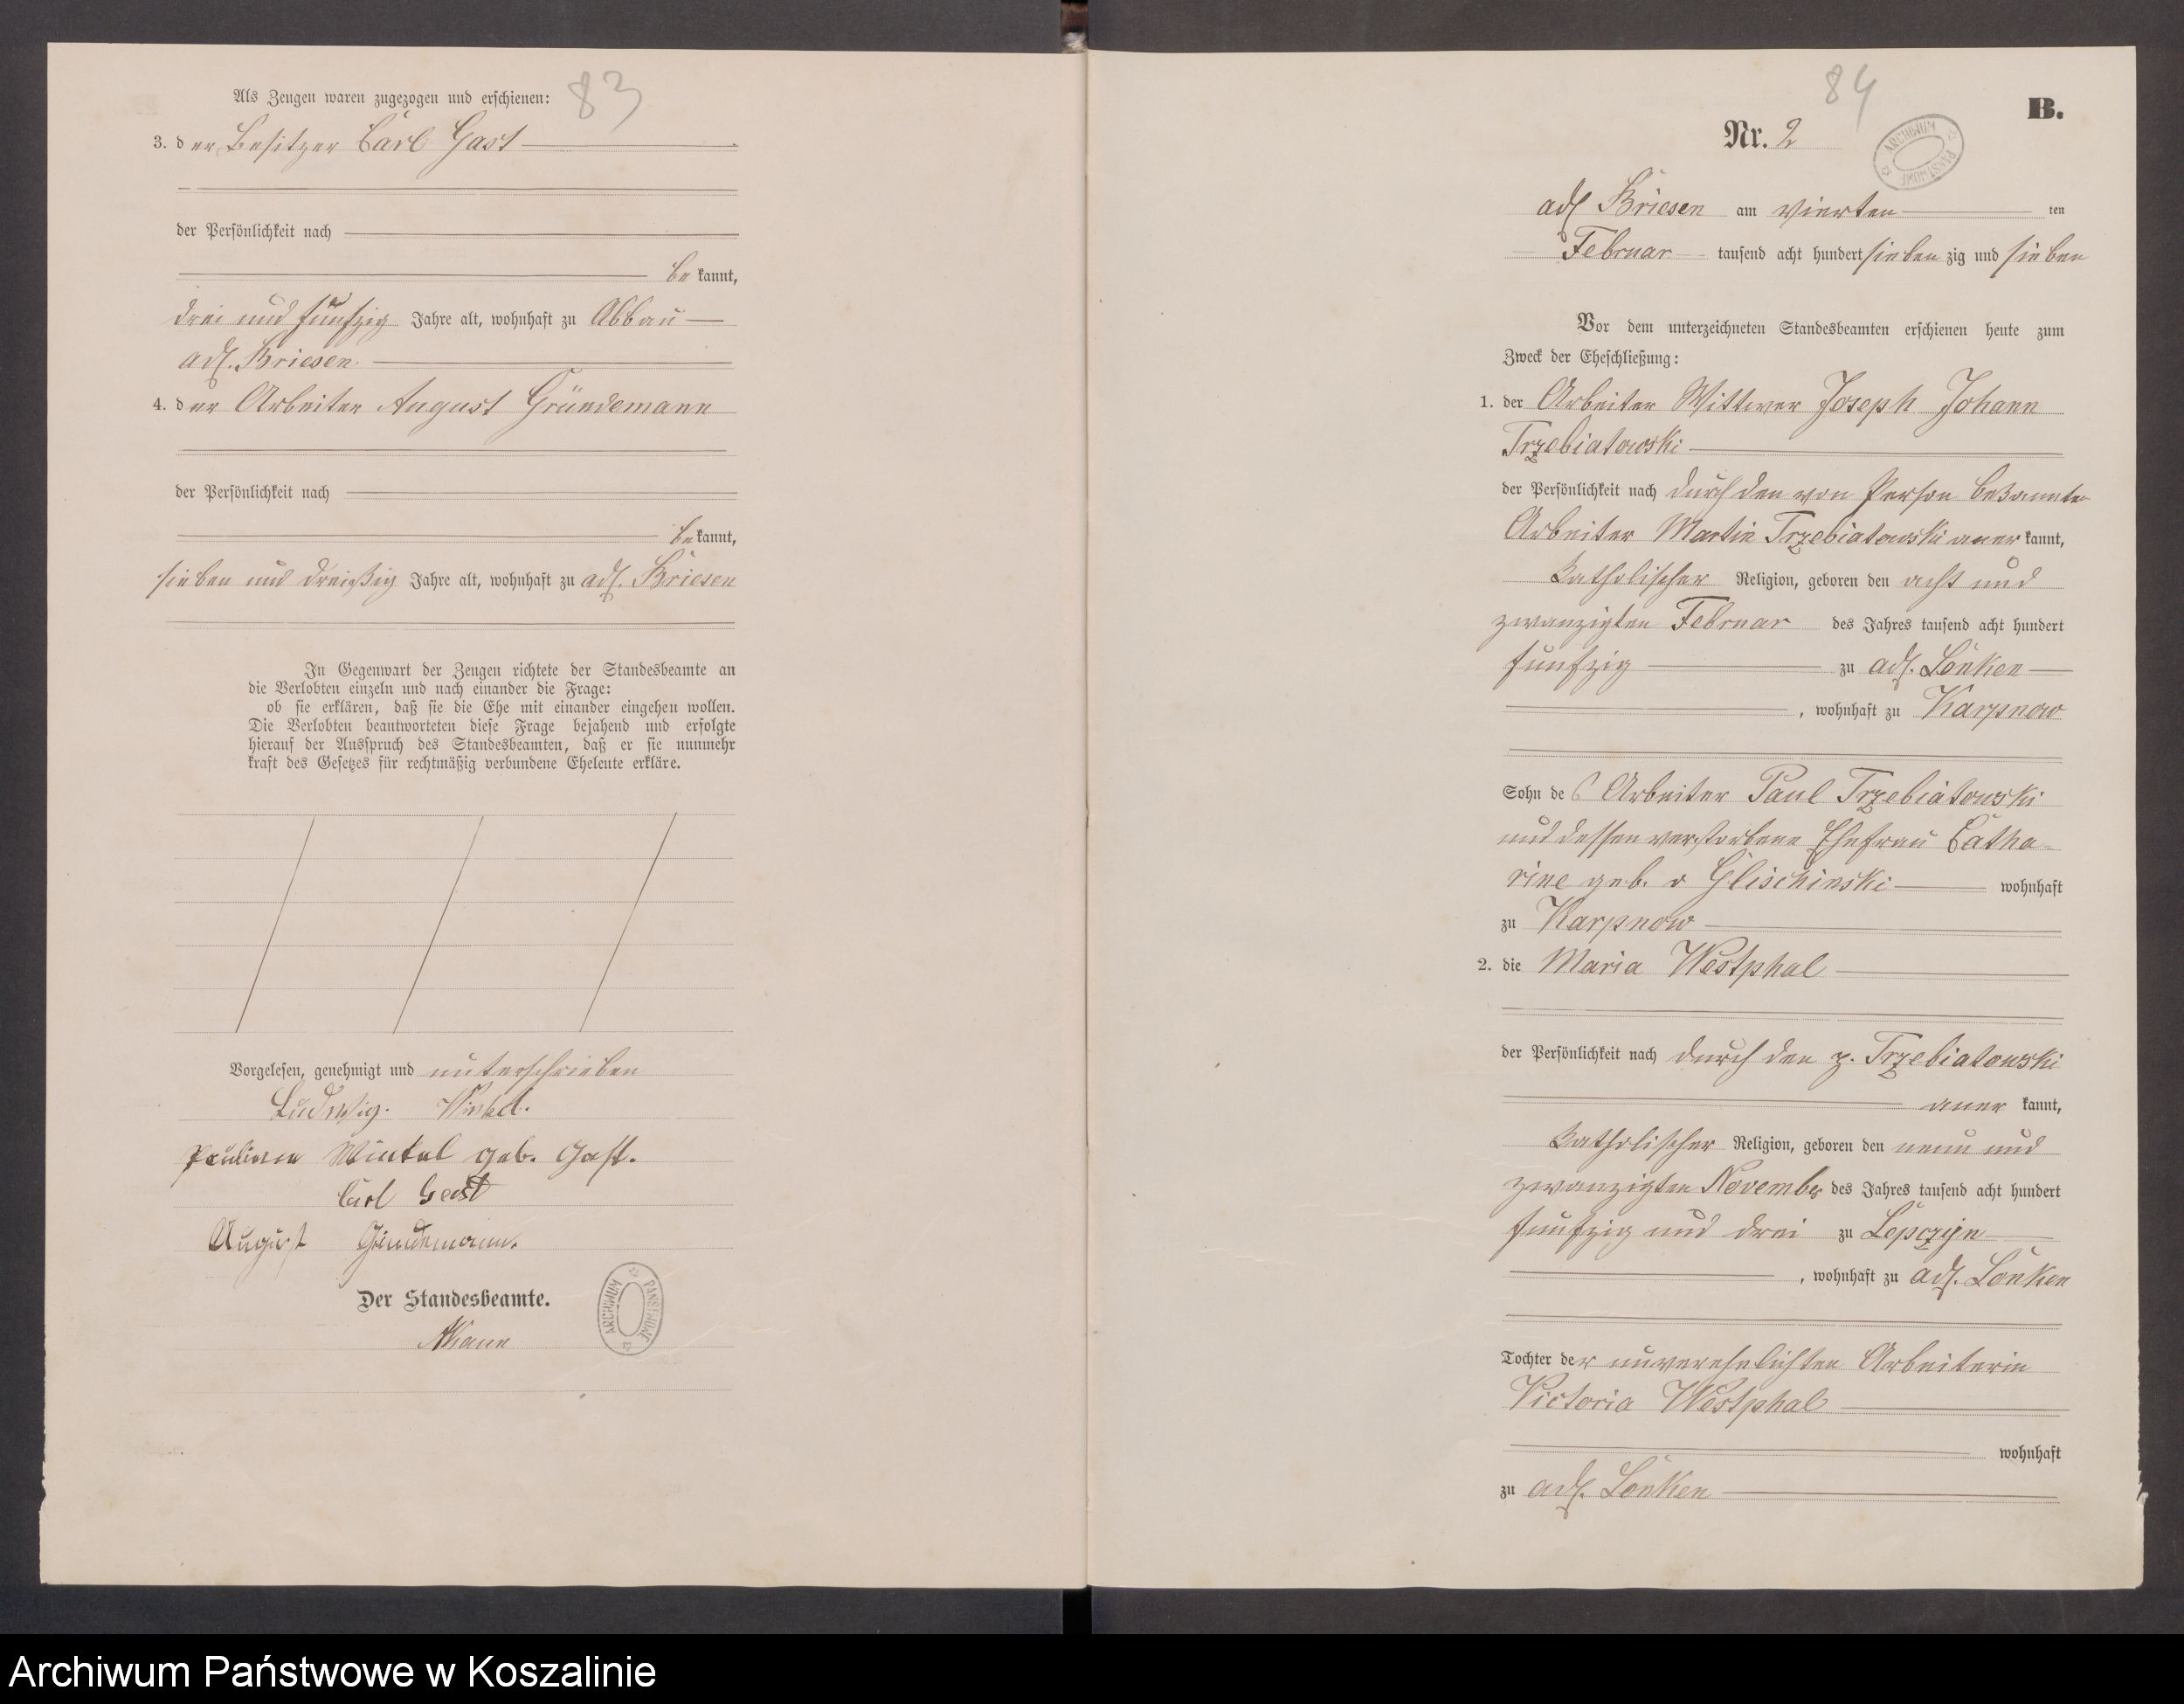 83
Als Zeugen waren zugezogen und erschienen:
3. der Besitzer Carl Gast
der Persönlichkeit nach
bekannt,
drei und fünfzig Jahre alt, wohnhaft zu Abbau
adl. Briesen
4. der Arbeiter August Gründemann
der Persönlichkeit nach
bekannt,
sieben und dreißig Jahre alt, wohnhaft zu adl. Briesen
In Gegenwart der Zeugen richtete der Standesbeamte an
die Verlobten einzeln und nach einander die Frage:
ob sie erklären, daß sie die Ehe mit einander eingehen wollen.
Die Verlobten beantworteten diese Frage bejahend und erfolgte
hierauf der Ausspruch des Standesbeamten, daß er sie nunmehr
kraft des Gesetzes für rechtmäßig verbundene Eheleute erkläre.
Vorgelesen, genehmigt und unterschrieben
Ludwig.
Pauline geb. Gast.
Carl Gast
August Gründemann.
Der Standesbeamte.
ARCHIWUM PAŃSTWOWE
84
B.
Nr. 2
ARCHIWUM PAŃSTWOWE
adl Briesen am vierten ten
Februar tausend acht hundert sieben zig und sieben
Vor dem unterzeichneten Standesbeamten erschienen heute zum
Zweck der Eheschließung:
1. der Arbeiter Wittwer Joseph Johann
Trzebiatowski
der Persönlichkeit nach durch den von Person bekannten
Arbeiter Martin Trzebiatowski anerkannt,
katholischer Religion, geboren den acht und
zwanzigten Februar des Jahres tausend acht hundert
fünfzig zu adl. Lonken
, wohnhaft zu Karpnow
Sohn des Arbeiter Paul Trzebiatowski
und dessen verstorbene Ehefrau Catha-
rine geb. v Glischinski wohnhaft
zu Karpnow
2. die Maria Westphal
der Persönlichkeit nach durch den p. Trzebiatowski
anerkannt,
katholischer Religion, geboren den neun und
zwanzigten November des Jahres tausend acht hundert
fünfzig und drei zu Lepczyn
, wohnhaft zu adl. Lonken
Tochter der unverehelichten Arbeiterin
Victoria Westphal
wohnhaft
zu adl. Lonken
Archiwum Państwowe w Koszalinie